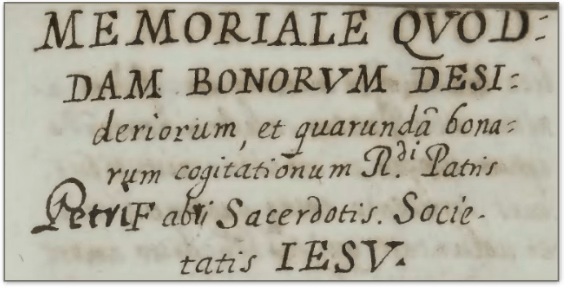 MEMORIALE QVOD:
DAM BONORVM DESI:
deriorum, et quarundã bona:
rum cogitationum R.di Patris
Petri Fabri Sacerdotis. Socie-
tatis IESV.